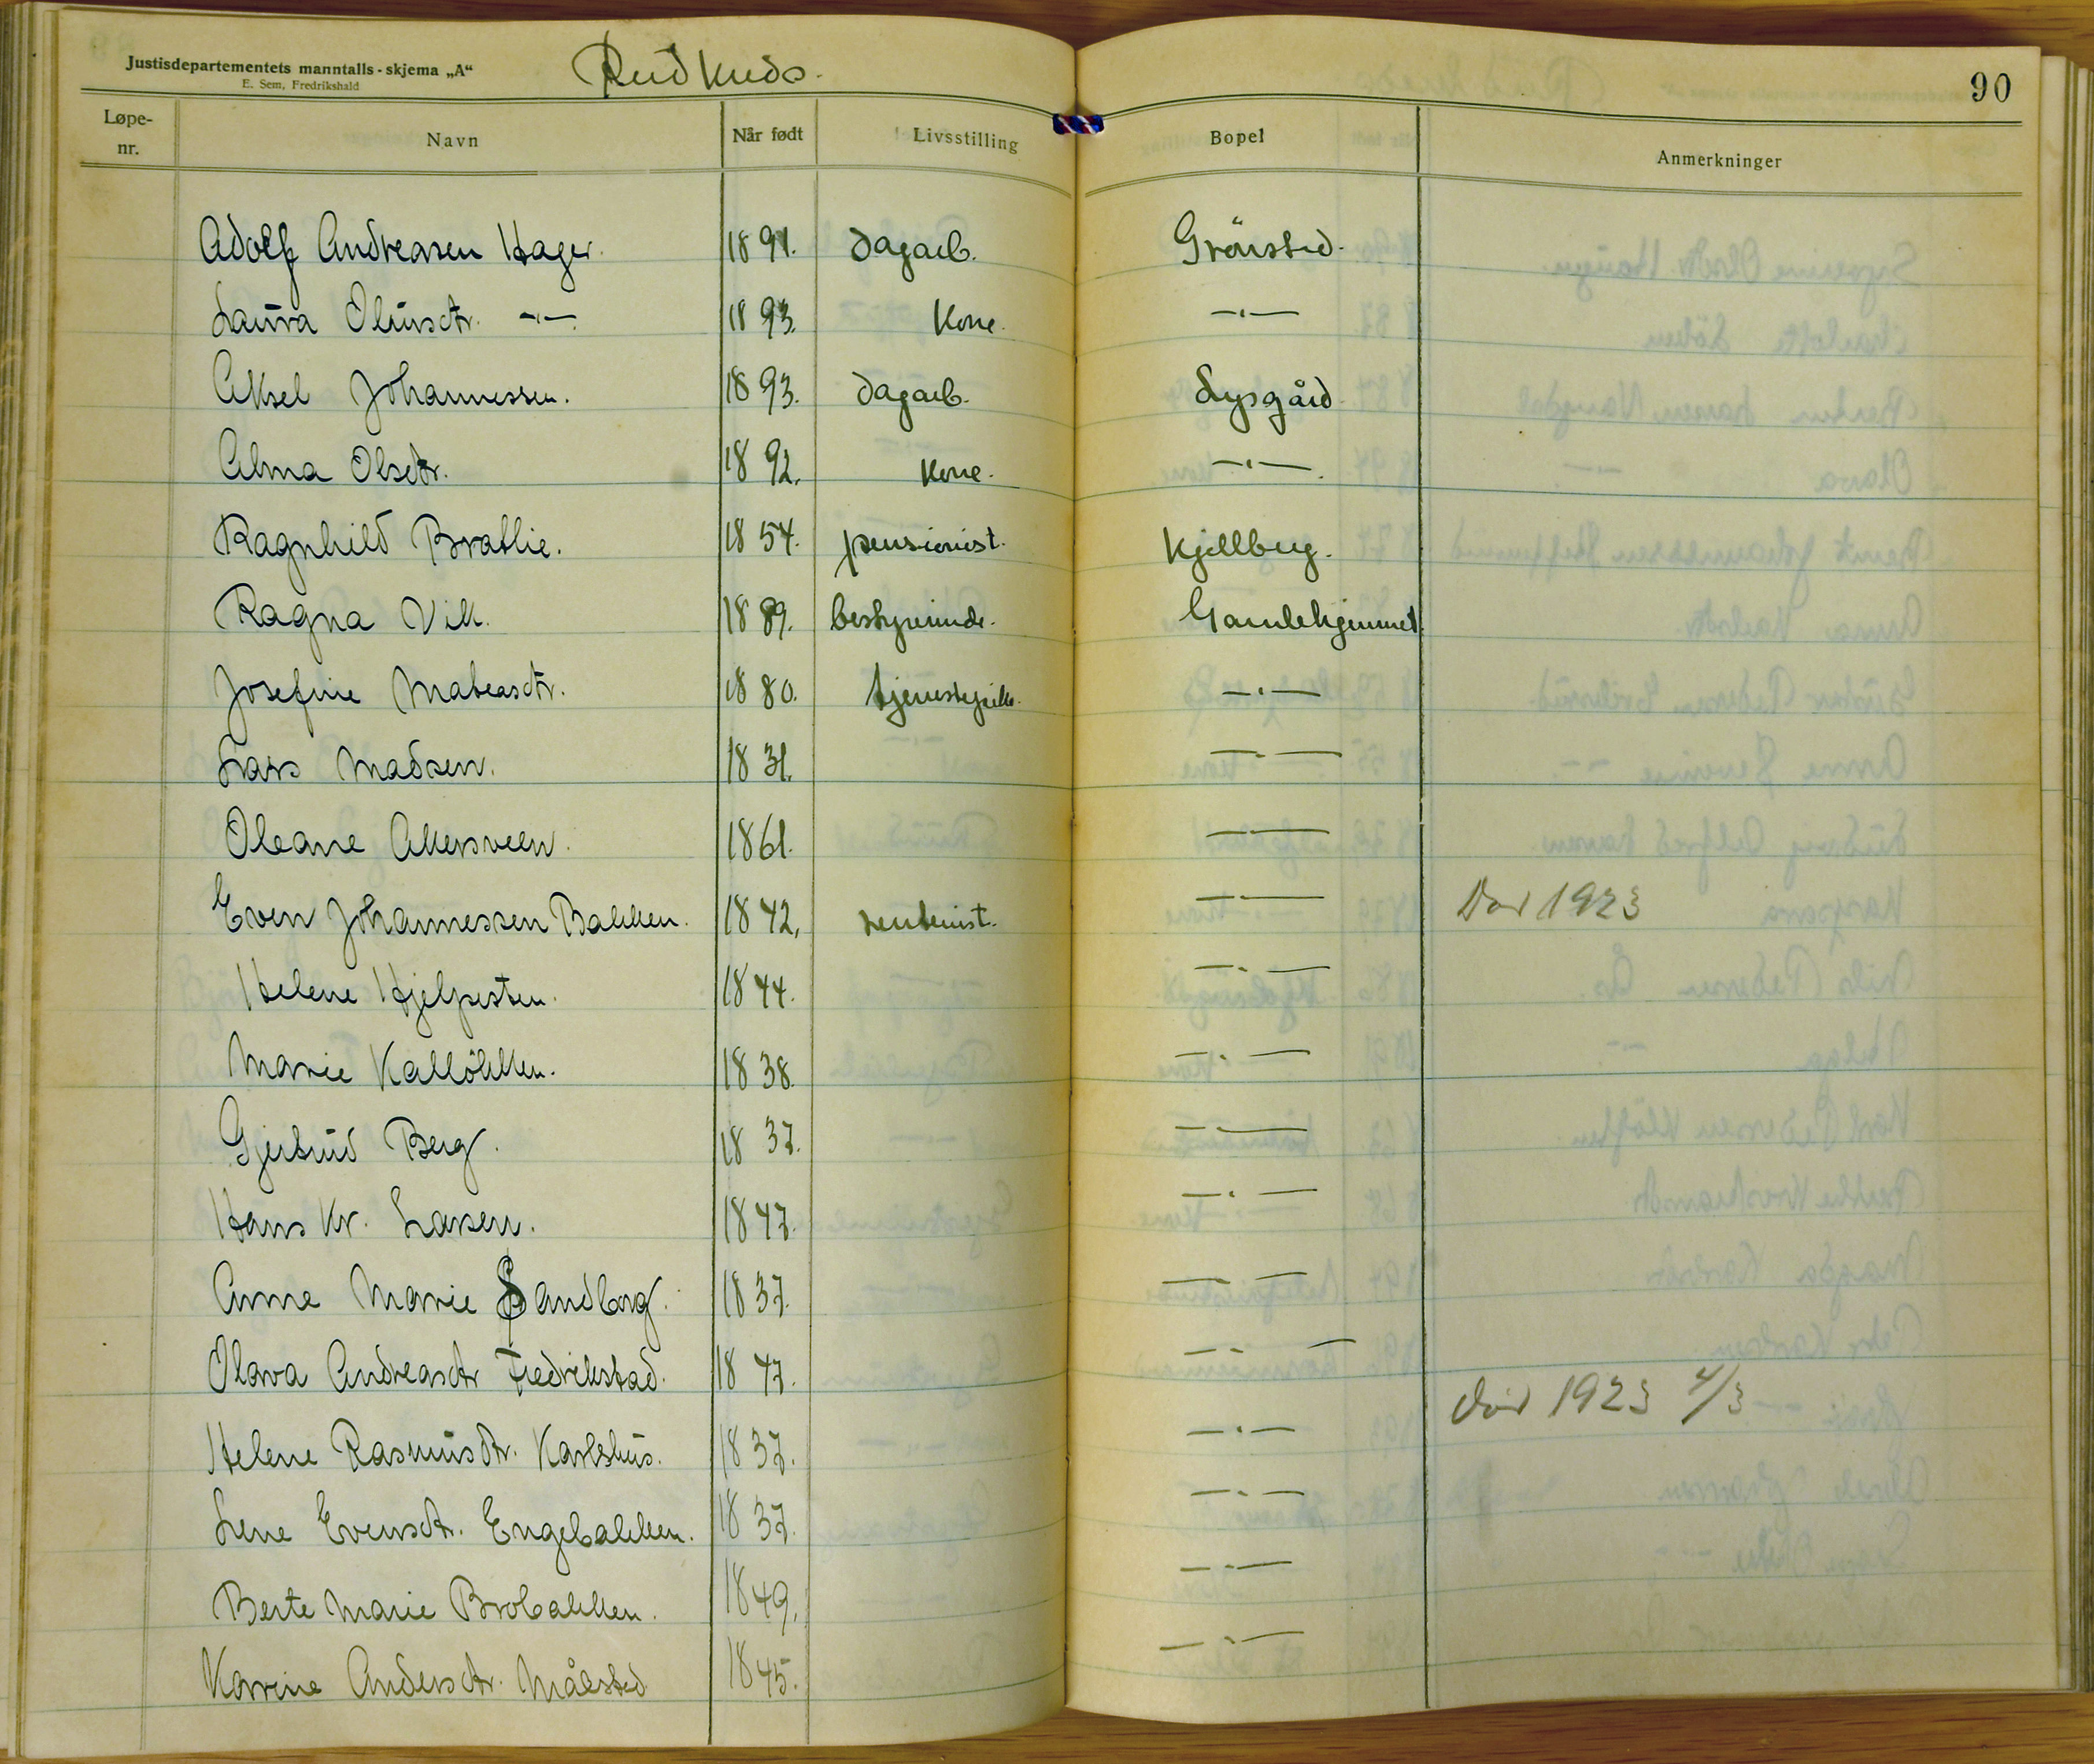 Justisdepartementets manntalls-skjema „A“
E. Sem, Fredrikshald
90
Løpe-nr. Navn Når født Livsstilling Bopel Anmerkninger
Adolf Andreasen Hager. 1891. dagarb. Grönsted.
Laura Olausdtr. -"-. 1893. Kone. -"-
Aksel Johannessen. 1893. dagarb. Lysgård
Alma Olsdtr. 1892. Kone. -"-.
Ragnhild Bratlie. 1854. pensionist. Kjellberg.
Ragna Vik. 1889. bestyrerinde. Gamlehjemmet.
Josefine Mateasdtr. 1880. tjenestepike. -"-
Lars Madsen. 1831. -"-
Oleane Akersveen. 1861. -"-
Even Johannessen Bakken. 1842. rentenist. -"- Död 1923
Helene Hjelpesten. 1844. -"-
Marie Kallökken. 1838. -"-
Gjertrud Berg. 1837. -"-
Hans Kr. Larsen. 1847. -"-
Anne Marie Sandborg. 1837. -"-
Olava Andreasdtr Fredrikstad. 1847. -"-
Helene Rasmusdtr. Karlshus. 1837. -"- död 1923 4/3
Lene Evensdtr. Engebakken. 1837. -"-
Berte Marie Brobakken. 1849. -"-
Karine Andersdtr. Målsted 1845. -"-